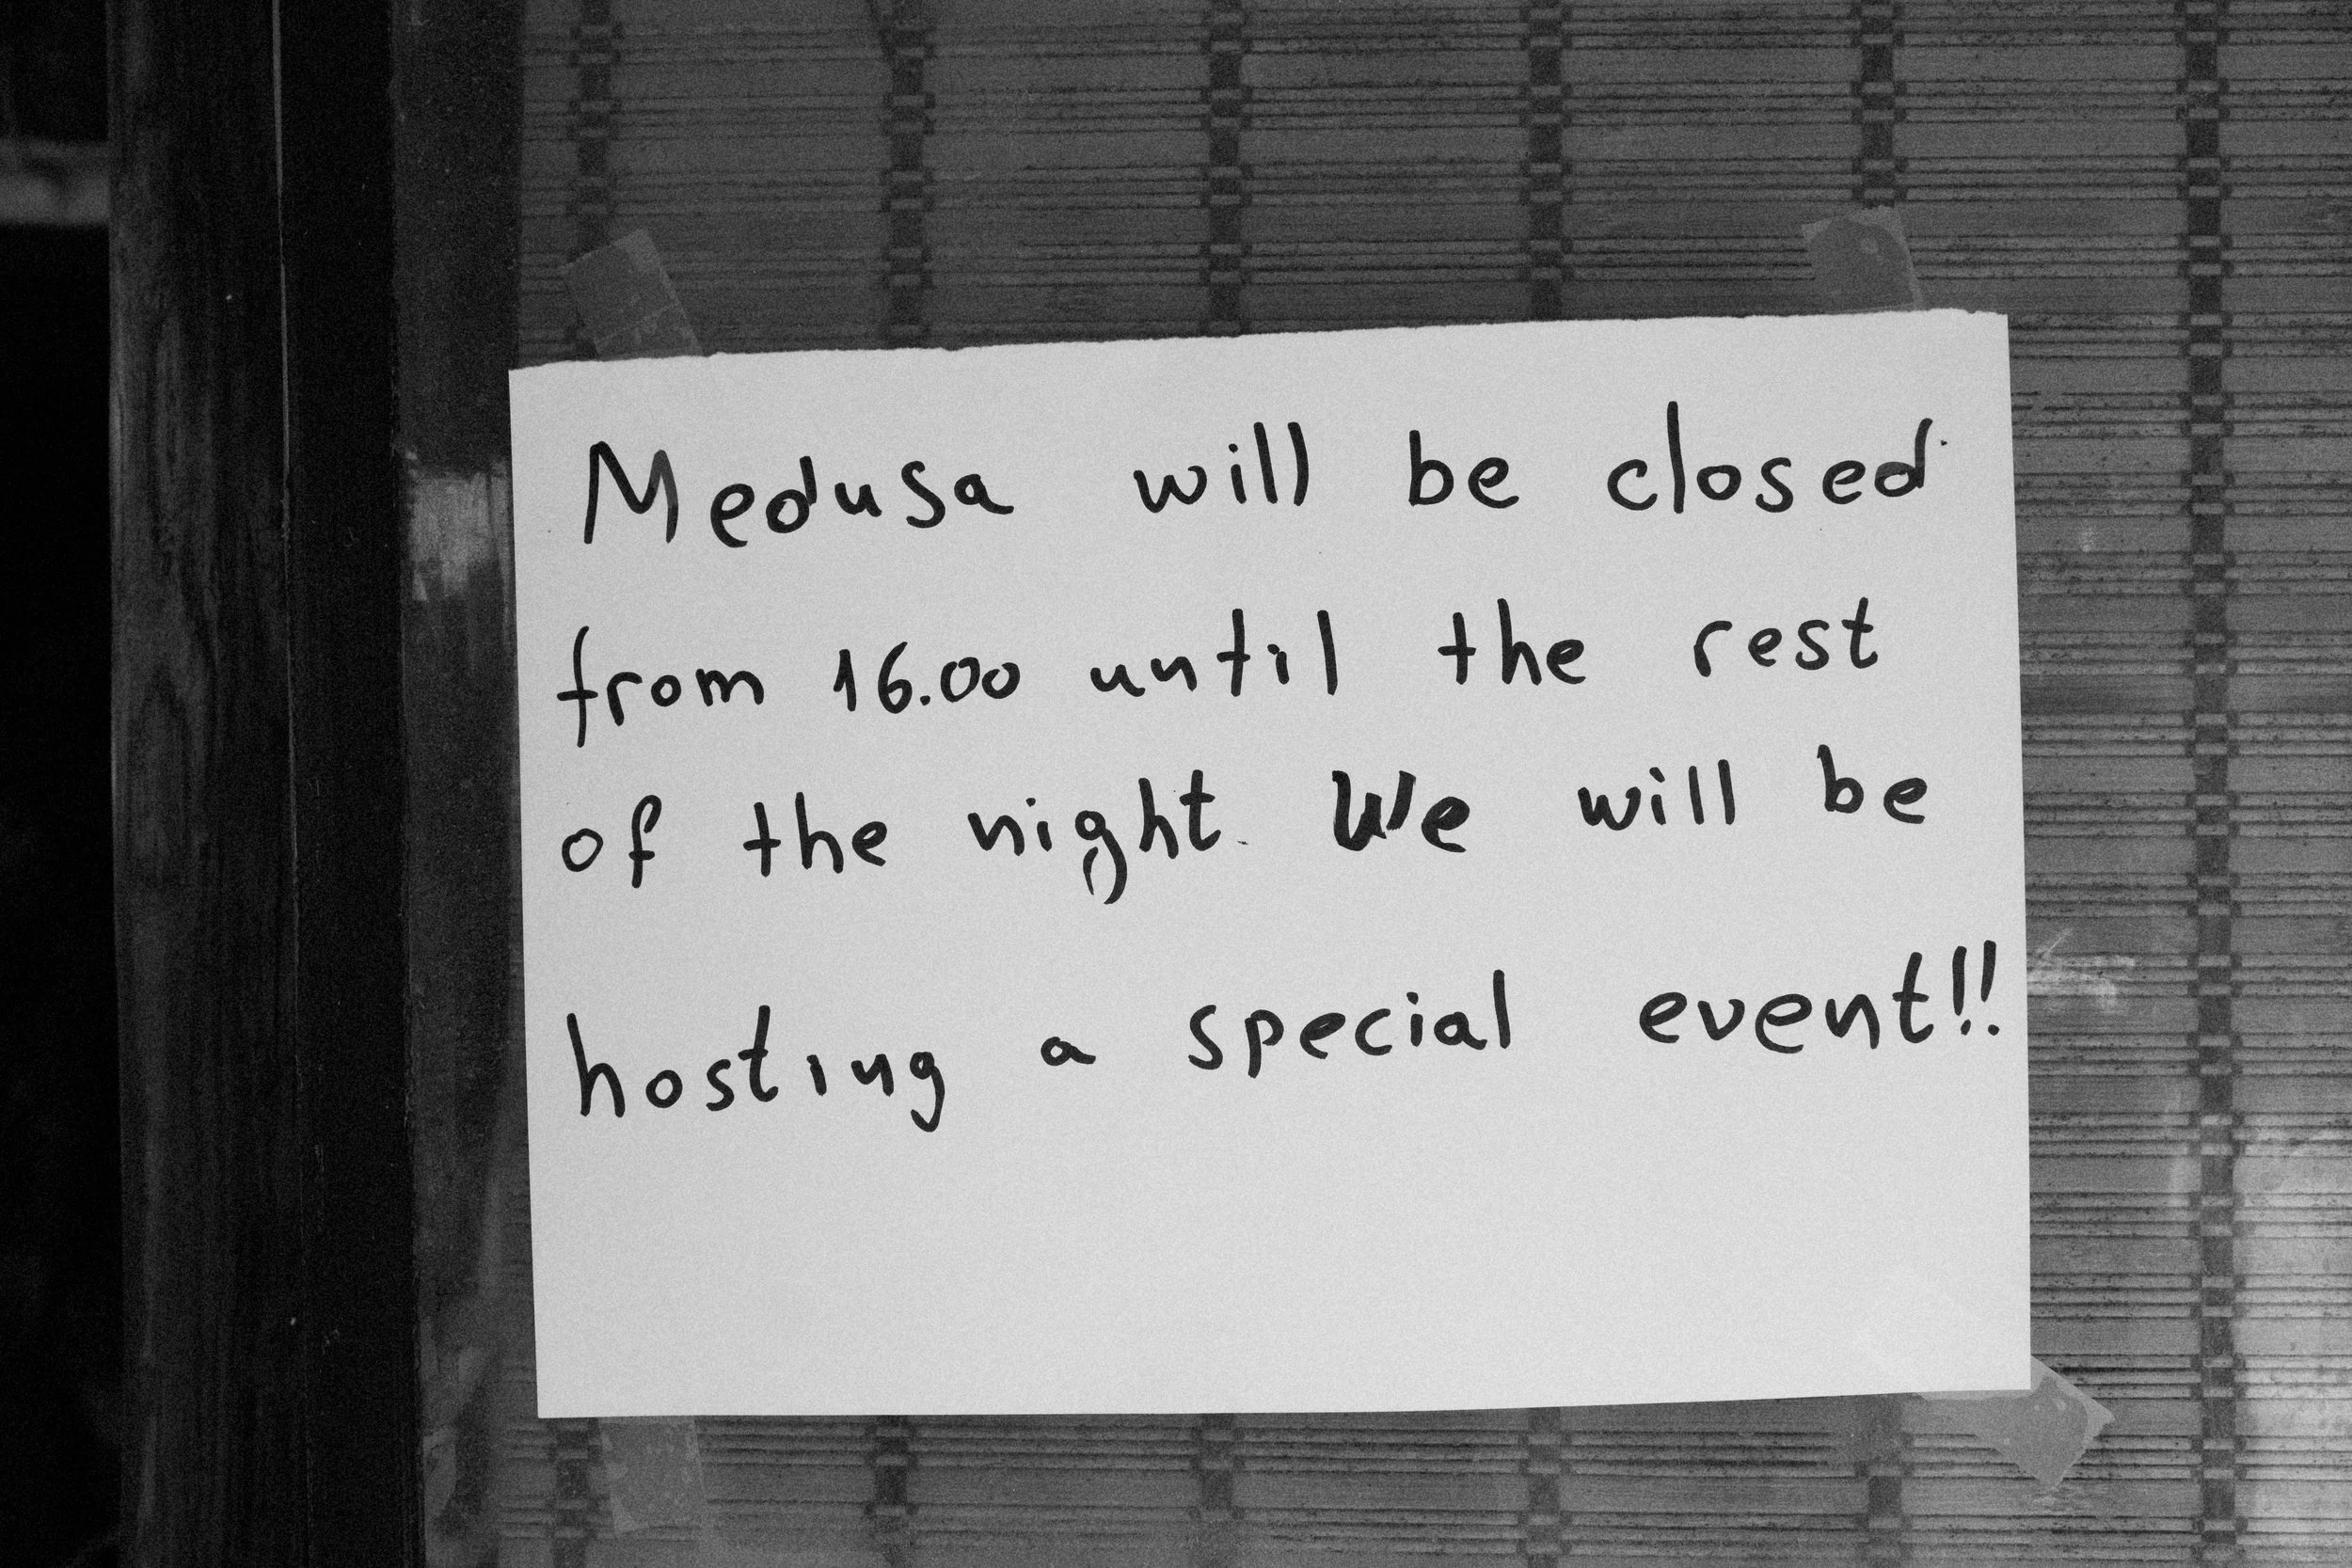 Medusa will be closed
from 16.00 until the rest
of the night. We will be
hosting a special event!!